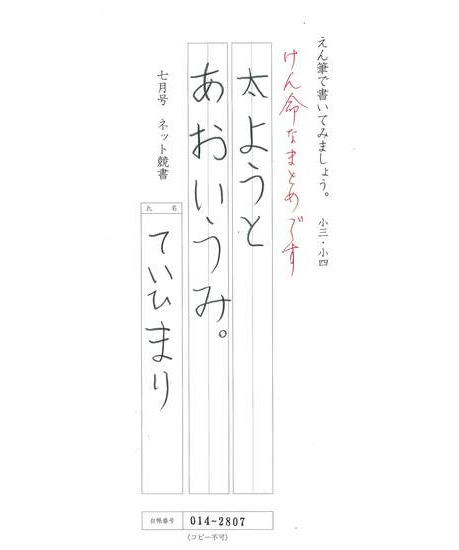 えん筆で書いてみましょう。 小三・小四
けん命なまとめです
太ようと
あおいうみ。
七月号 ネット競書
氏名
ていひまり
台帳番号 014-2807
(コピー不可)